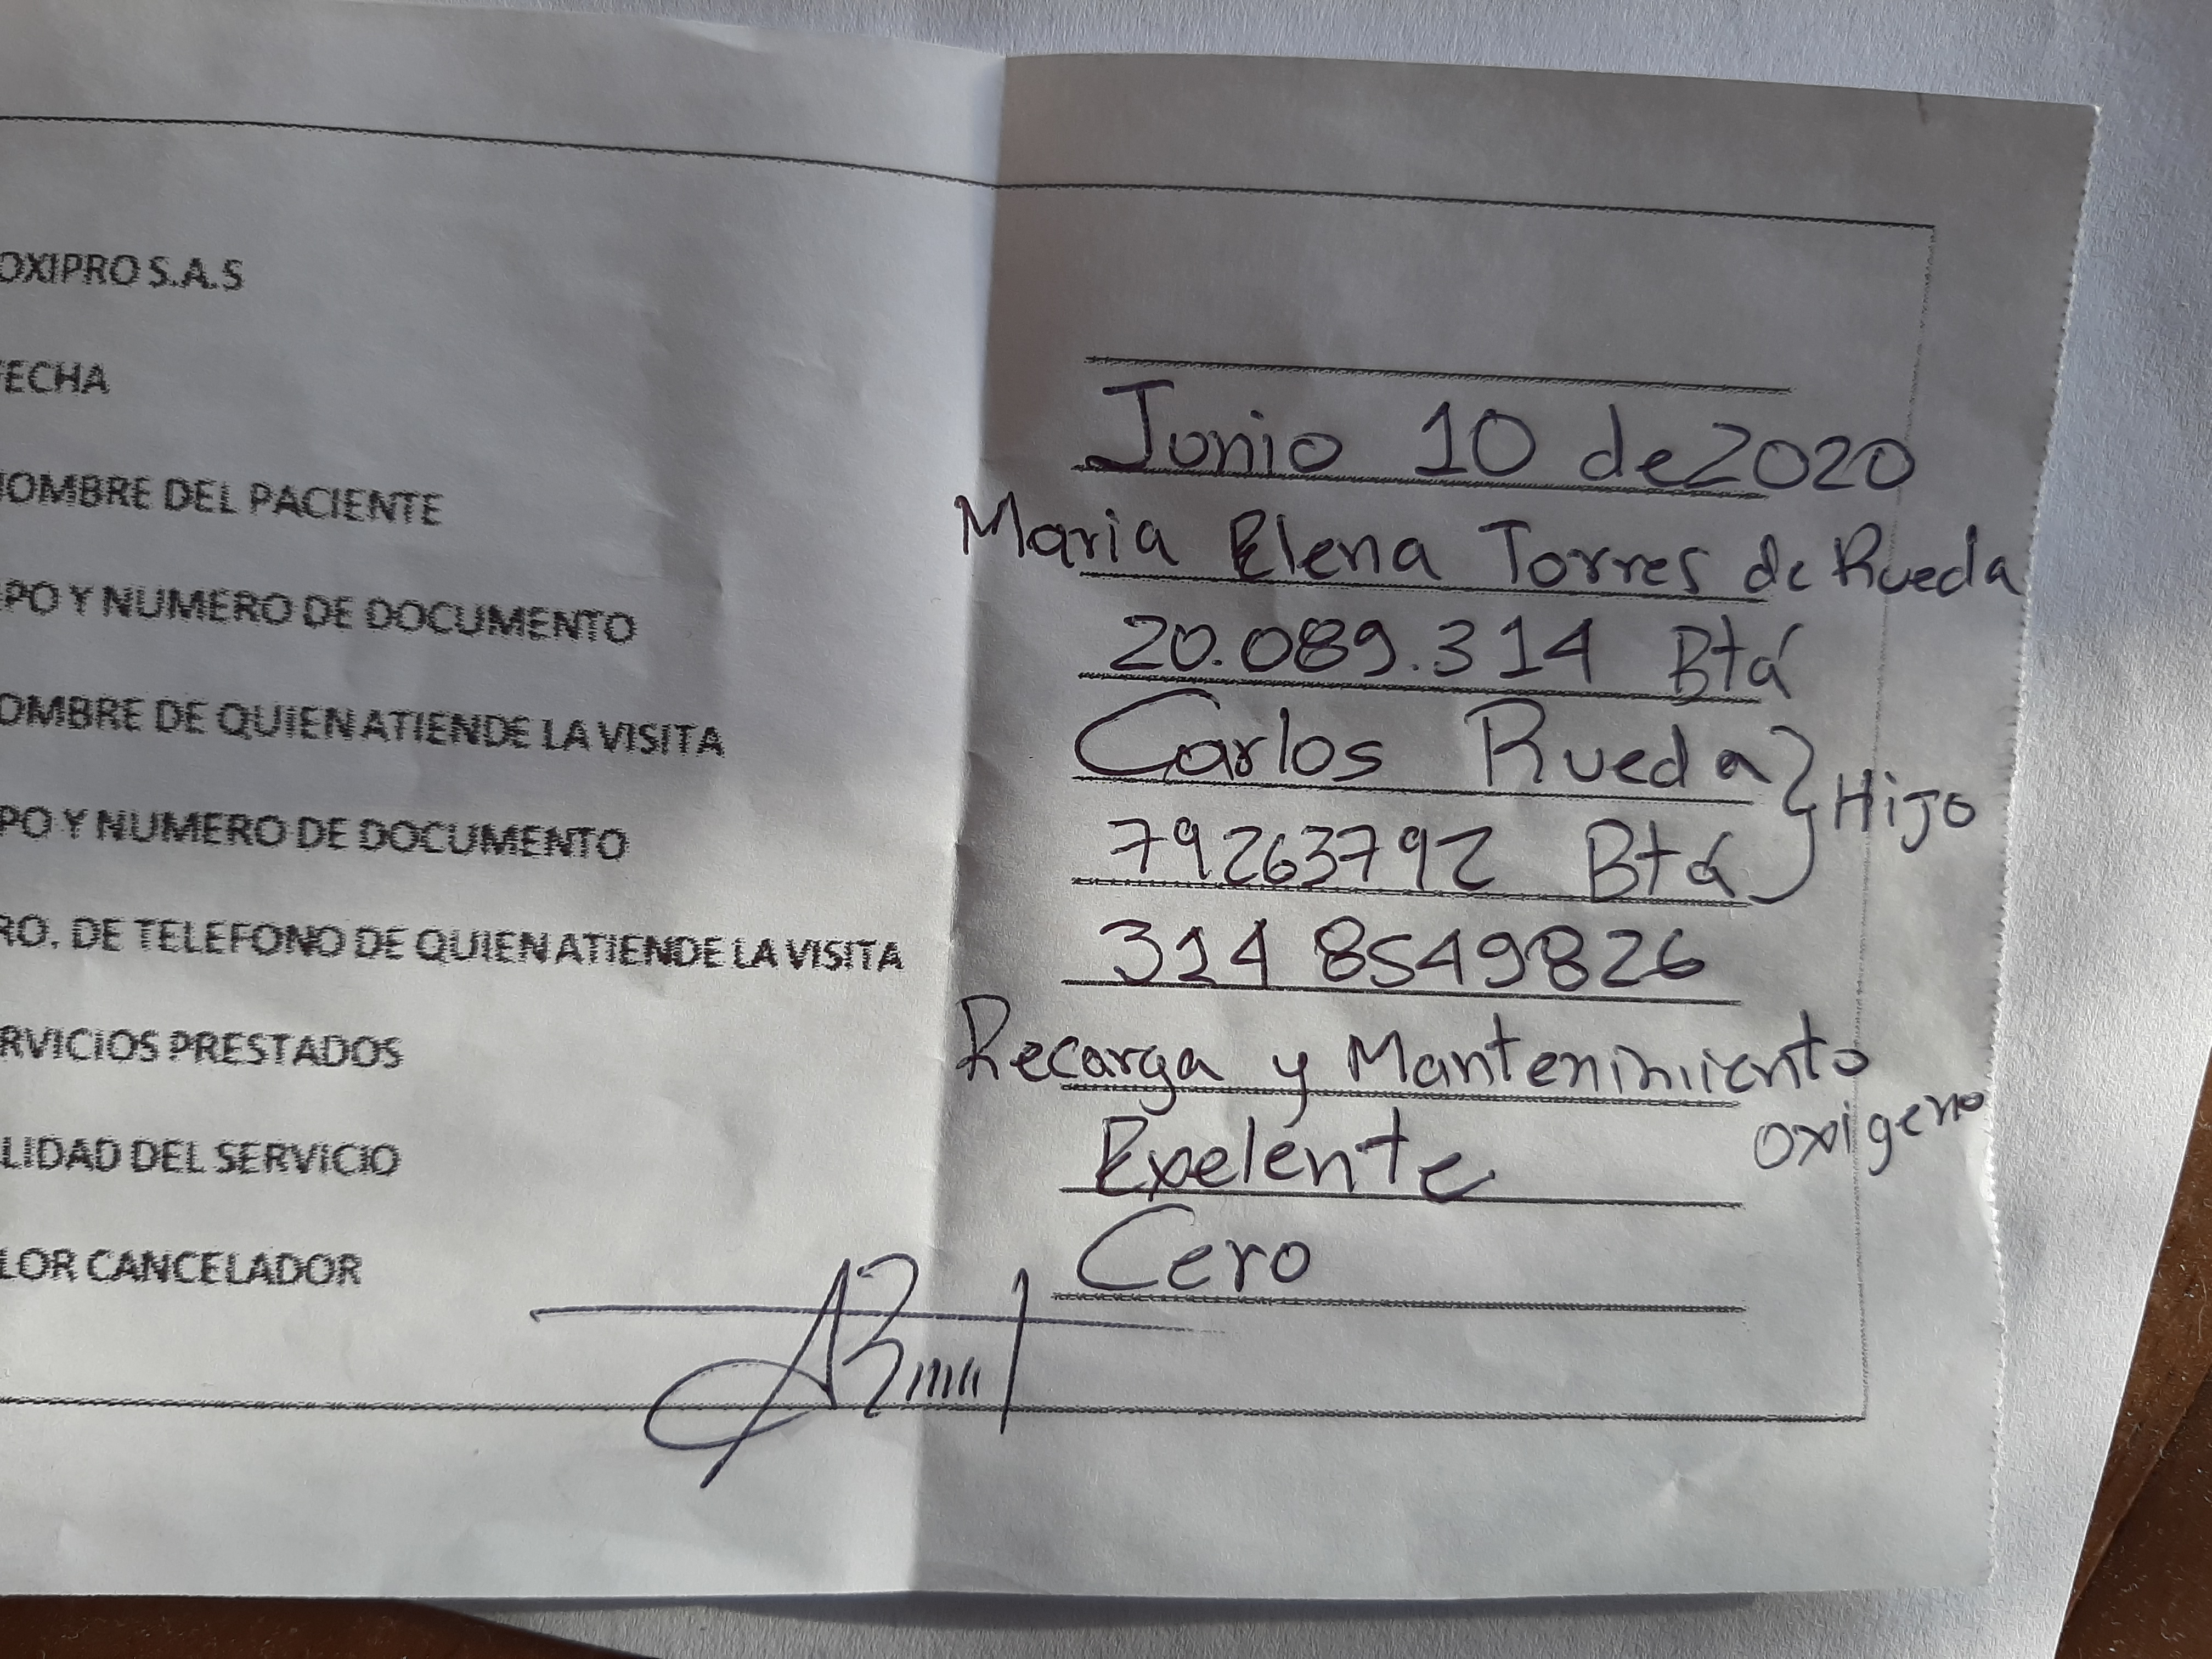 OXIPRO S.A.S
FECHA Junio 10 de 2020
NOMBRE DEL PACIENTE Maria Elena Torres de Rueda
PO Y NUMERO DE DOCUMENTO 20.089.314 Btá
OMBRE DE QUIEN ATIENDE LA VISITA Carlos Rueda } Hijo
PO Y NUMERO DE DOCUMENTO 79263792 Btá
RO. DE TELEFONO DE QUIEN ATIENDE LA VISITA 314 8549826
RVICIOS PRESTADOS Recarga y Mantenimiento
oxigeno
LIDAD DEL SERVICIO Exelente
LOR CANCELADOR Cero